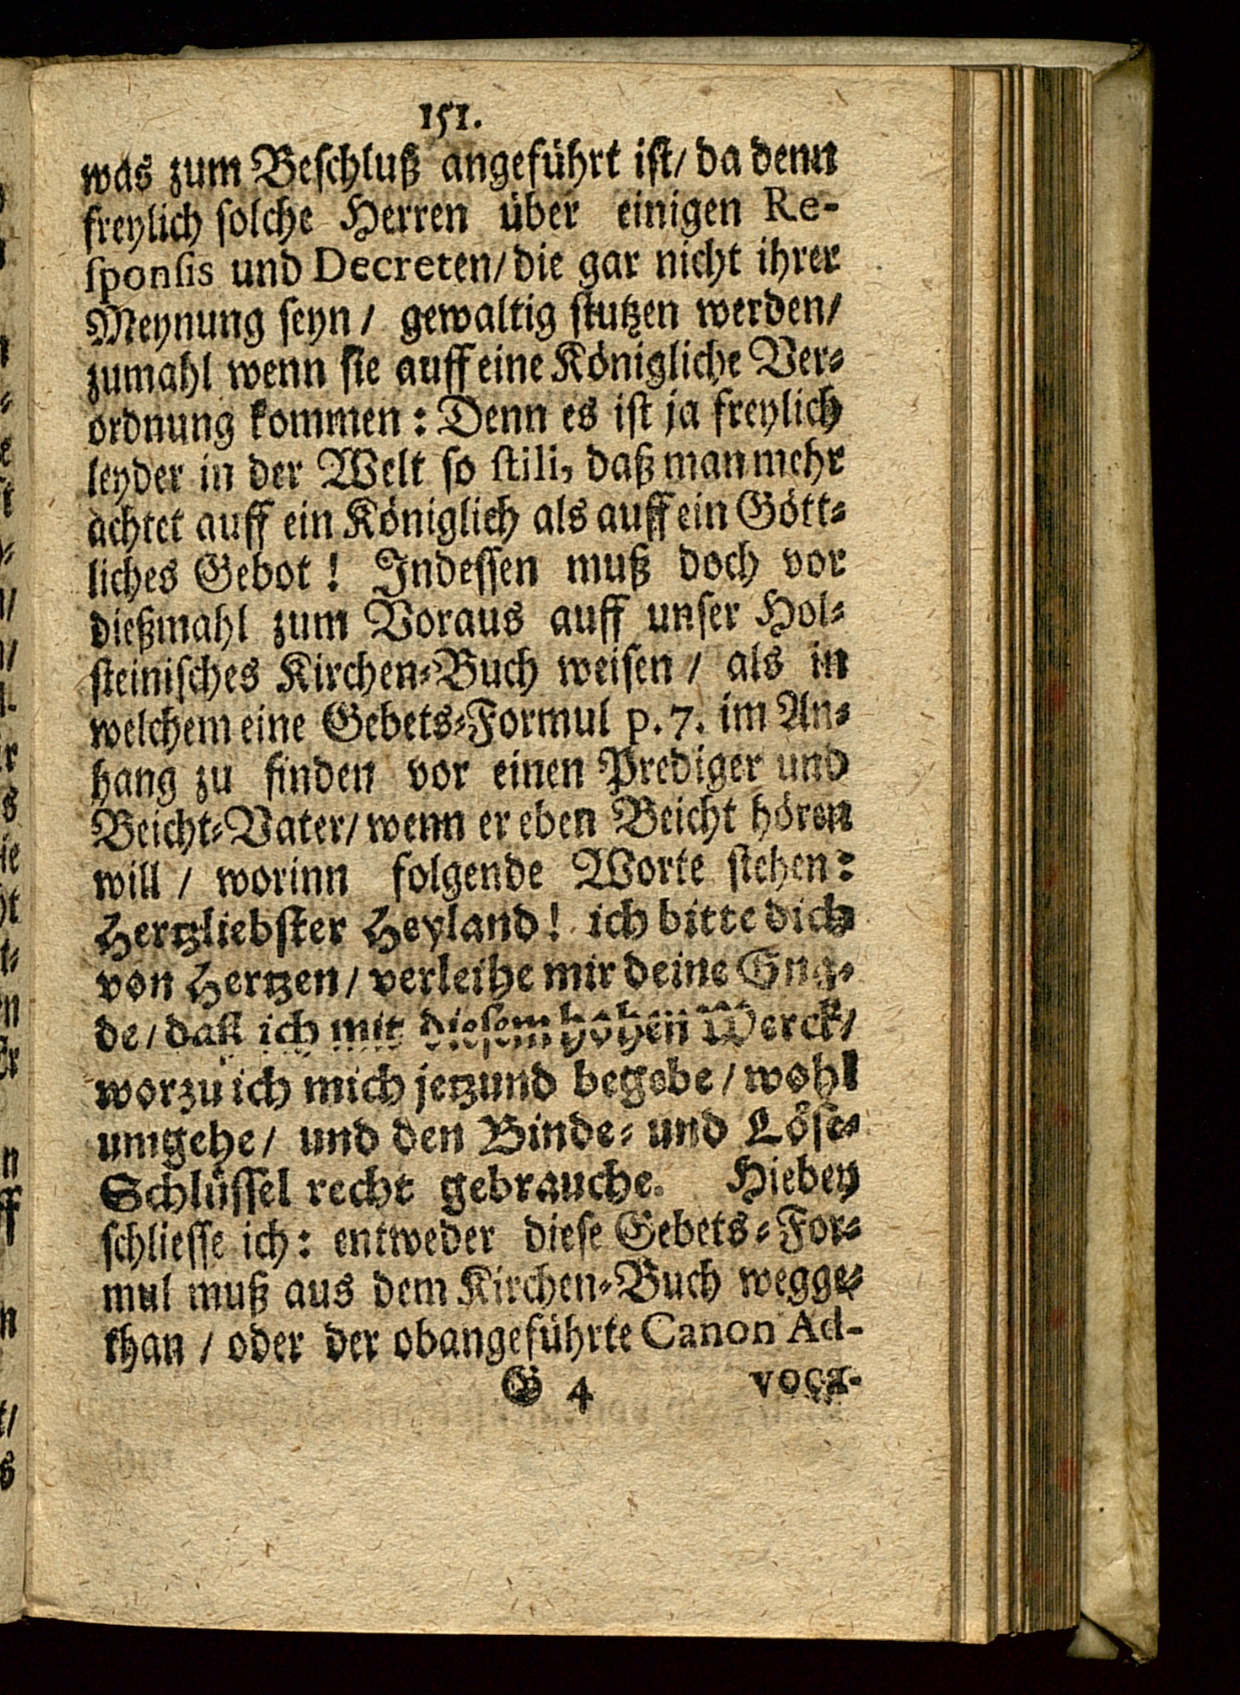 151.
was zum Beschluß angeführt ist/ da denn
freylich solche Herren über einigen Re-
sponsis und Decreten/ die gar nicht ihrer
Meynung seyn/ gewaltig stutzen werden/
zumahl wenn sie auff eine Königliche Ver-
ordnung kommen: Denn es ist ja freylich
leyder in der Welt so stili, daß man mehr
achtet auff ein Königlich als auff ein Gött-
liches Gebot! Indessen muß doch vor
dießmahl zum Voraus auff unser Hol-
steinisches Kirchen-Buch weisen/ als in
welchem eine Gebets-Formul p. 7. im An-
hang zu finden vor einen Prediger und
Beicht-Vater/ wenn er eben Beicht hören
will/ worinn folgende Worte stehen:
Hertzliebster Heyland! ich bitte dich
von Hertzen/ verleihe mir deine Gna-
de/ daß ich mit diesem hohen Werck/
worzu ich mich jetzund begebe/ wohl
umgehe/ und den Binde- und Löse-
Schlüssel recht gebrauche. Hiebey
schliesse ich: entweder diese Gebets-For-
mul muß aus dem Kirchen-Buch wegge-
than/ oder der obangeführte Canon Ad-
G 4 voca-